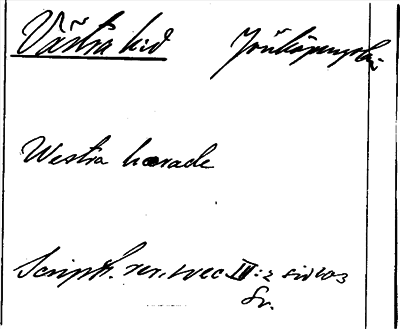 Västra hd Jönköpings län
Westra hærade
Script. rer. svec III: 2 sid 103
Sv.